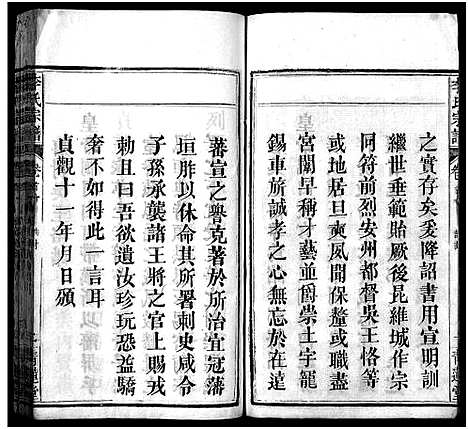 之實存矣爰降詔書用宣明訓
繼世垂範貽厥後昆維城作宗
同符前烈安州都督吳王恪等
或地居旦奭夙聞保釐或職盡
宮闈早稱才藝並爵崇土宇寵
錫車旂誠孝之心無忘於在遠
蕃宣之譽克著於所治宜冠藩
垣胙以休命其所署刺史咸令
子孫承襲諸王將之官上賜戒
勅且曰吾欲遺汝珍玩恐益驕
奢不如得此一言耳
貞觀十一年月日頒
李氏宗譜